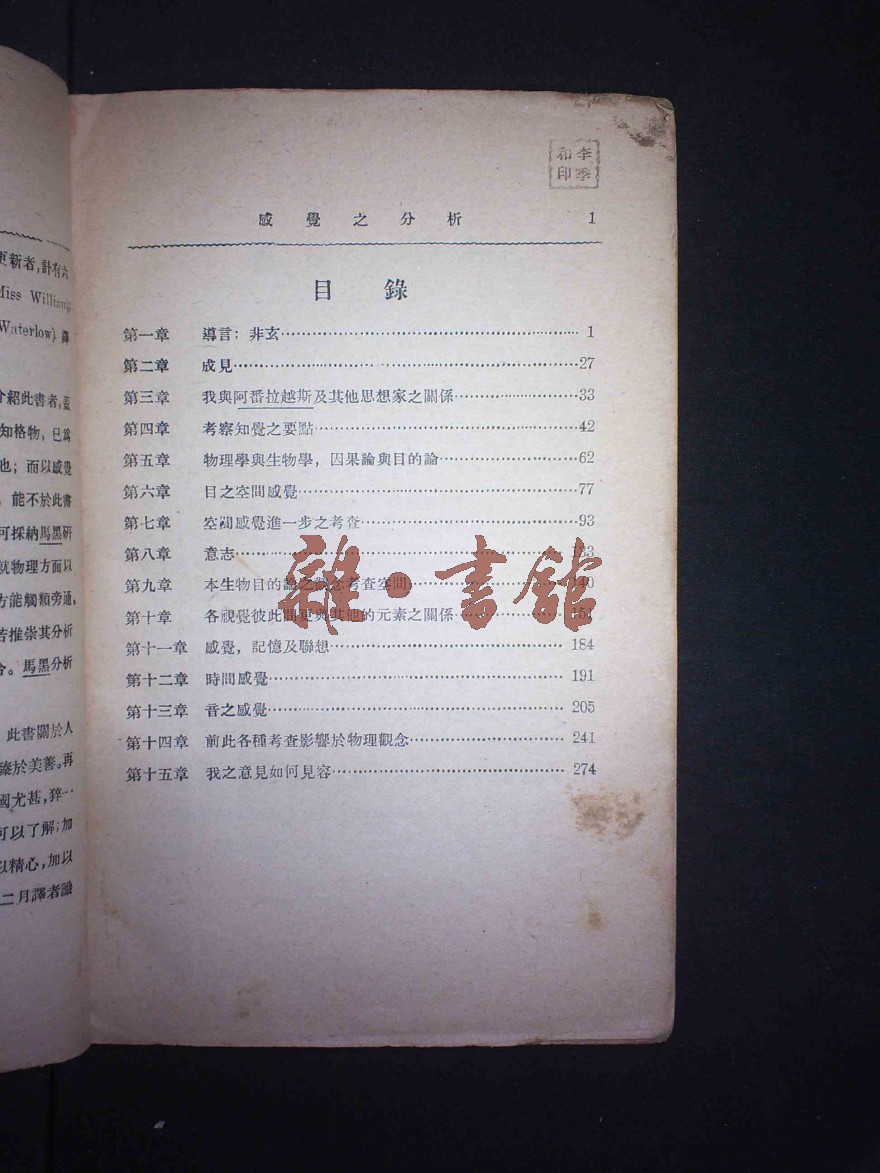 更新者,計有六
Miss Williams
Waterlow) 譯
介紹此書者,蓋
知格物,已爲
也;而以感覺
能不於此書
可採納馬黑研
就物理方面以
方能觸類旁通。
苦推崇其分析
馬黑分析
此書關於人
臻於美善。再
國尤甚,猝一
可以了解;加
以精心,加以
二月譯者識
李季
和印
感覺之分析 1
目錄
第一章 導言:非玄 1
第二章 成見 27
第三章 我與阿番拉越斯及其他思想家之關係 33
第四章 考察知覺之要點 42
第五章 物理學與生物學,因果論與目的論 62
第六章 目之空間感覺 77
第七章 空間感覺進一步之考查 93
第八章 意志 133
第九章 本生物目的論之觀念考查空間 140
第十章 各視覺彼此間更與其他的元素之關係 151
第十一章 感覺,記憶及聯想 184
第十二章 時間感覺 191
第十三章 音之感覺 205
第十四章 前此各種考查影響於物理觀念 241
第十五章 我之意見如何見容 274
雜·書館